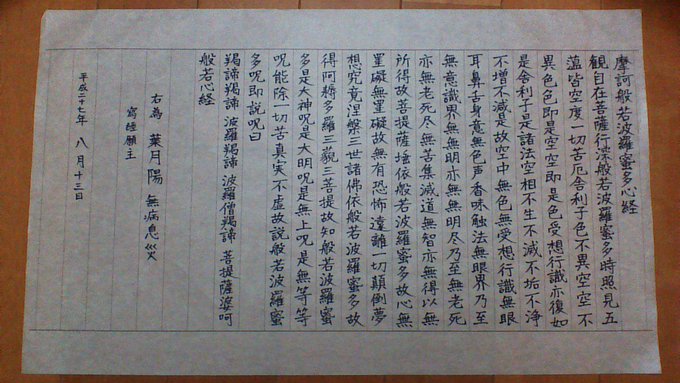 摩訶般若波羅蜜多心経
観自在菩薩行深般若波羅蜜多時照見五
蘊皆空度一切苦厄舎利子色不異空空不
異色色即是空空即是色受想行識亦復如
是舎利子是諸法空相不生不滅不垢不浄
不増不減是故空中無色無受想行識無眼
耳鼻舌身意無色声香味触法無眼界乃至
無意識界無無明亦無無明尽乃至無老死
亦無老死尽無苦集滅道無智亦無得以無
所得故菩提薩埵依般若波羅蜜多故心無
罣礙無罣礙故無有恐怖遠離一切顛倒夢
想究竟涅槃三世諸佛依般若波羅蜜多故
得阿耨多羅三藐三菩提故知般若波羅蜜
多是大神呪是大明呪是無上呪是無等等
呪能除一切苦真実不虚故説般若波羅蜜
多呪即説呪曰
羯諦羯諦 波羅羯諦 波羅僧羯諦 菩提薩婆呵
般若心経
右為 葉月陽 無病息災
写経願主
平成二十七年 八月十三日